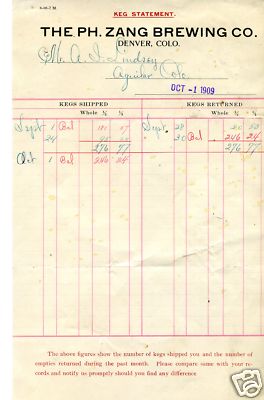 KEG STATEMENT.
THE PH. ZANG BREWING CO.
DENVER, COLO.
Mr A. I. Lindsey
Aguilar Colo.
OCT -1 1909
KEGS SHIPPED KEGS RETURNED
Whole ½ ¼ Whole ½ ¼
Sept 1 Bal 181 Sept 28 30
24 " 30 Bal 246 24
276 77 276 77
Oct 1 Bal 246 24
The above figures show the number of kegs shipped you and the number of
empties returned during the past month. Please compare same with your re-
cords and notify us promptly should you find any difference